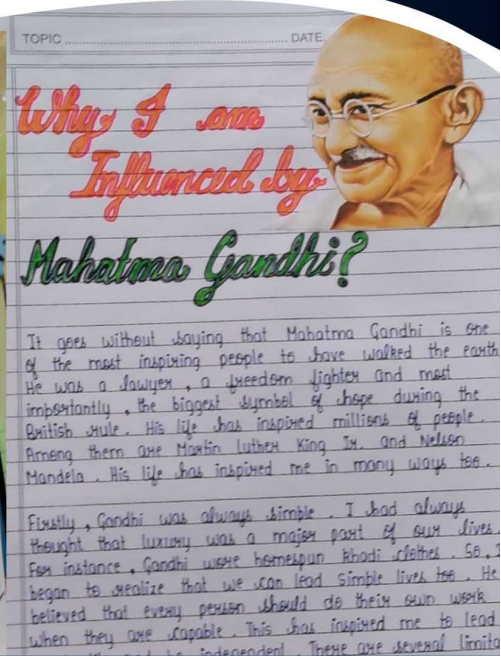 TOPIC ........................ DATE
Why I am
Influenced by
Mahatma Gandhi?
It goes without saying that Mahatma Gandhi is one
of the most inspiring people to have walked the earth
He was a lawyer , a freedom fighter and most
importantly , the biggest symbol of hope during the
British rule . His life has inspired millions of people .
Among them are Martin luther King Jr. and Nelson
Mandela . His life has inspired me in many ways too .
Firstly , Gandhi was always simple . I had always
thought that luxury was a major part of our lives .
For instance , Gandhi wore homespun khadi clothes . So , I
began to realize that we can lead simple lives too . He
believed that every person should do their own work
when they are capable . This has inspired me to lead
be independent . There are several